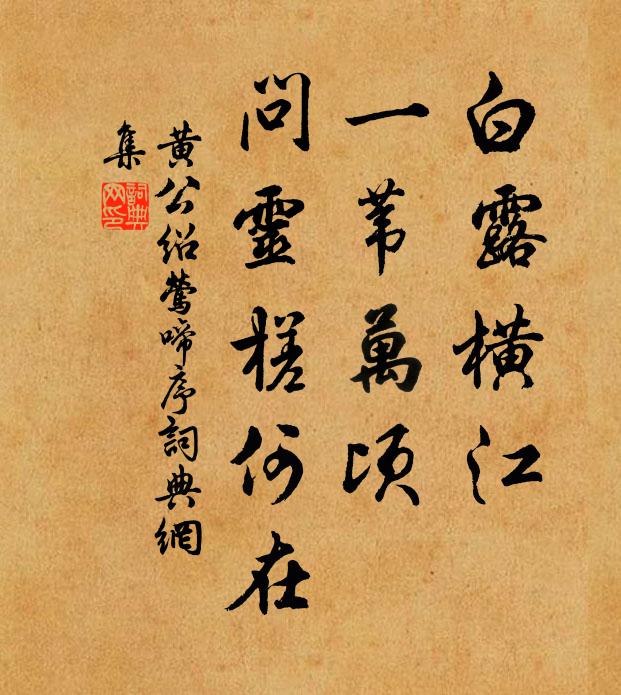 白露橫江
一苇萬頃
問靈槎何在
黃公紹鶯啼序詞典網
集
詞典
网印